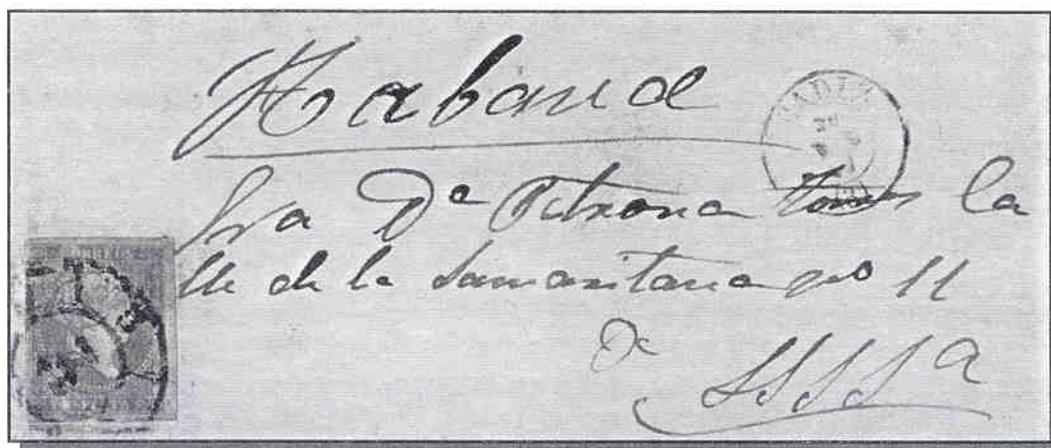 Habana
CADIZ
Sra Dª Petrona Torres Ca
lle de la Samaritana nº 11
Dª